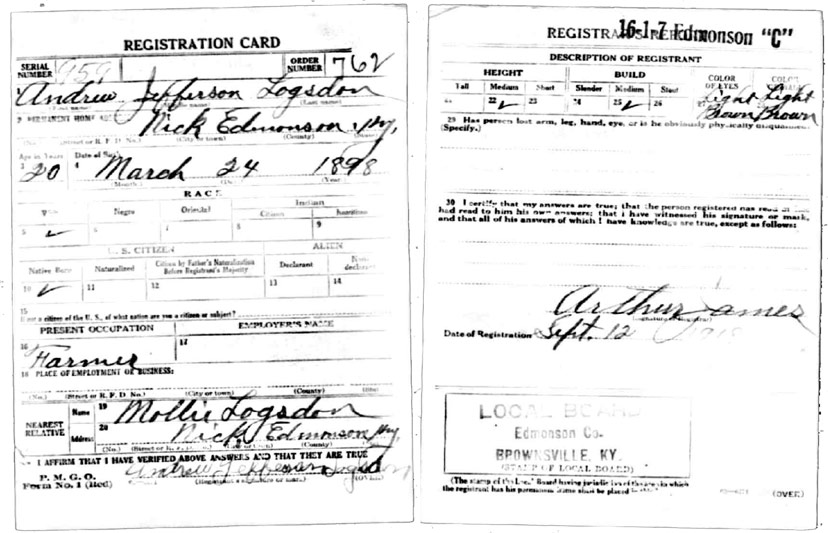 REGISTRATION CARD
SERIAL NUMBER 959
ORDER NUMBER 762
Andrew Jefferson Logsdon
(Last name)
PERMANENT HOME
Nick Edmonson Ky.
(Street or R. F. D. No.) (City or town) (County)
Age in Years Date of Birth
3 20 4 March 24 1898
(Month) (Year)
RACE
Negro Oriental Indian
Citizen
5 ✓ 6 7 8 9
U. S. CITIZEN ALIEN
Native Born Naturalized Citizen by Father's Naturalization Before Registrant's Majority Declarant Non-declarant
10 ✓ 11 12 13 14
15
If not a citizen of the U. S., of what nation are you a citizen or subject?
PRESENT OCCUPATION EMPLOYER'S NAME
16 Farmer 17
18 PLACE OF EMPLOYMENT OR BUSINESS:
(No.) (Street or R. F. D. No.) (City or town) (County) (State)
NEAREST RELATIVE
Name 19 Mollie Logsdon
Address 20 Nick Edmonson Ky.
(No.) (County)
I AFFIRM THAT I HAVE VERIFIED ABOVE ANSWERS AND THAT THEY ARE TRUE
P. M. G. O.
Form No. 1 (Red)
Andrew Jefferson Logsdon
(Registrant's signature or mark) (OVER)
REGISTRAR'S REPORT
16-1-7 Edmonson "C"
DESCRIPTION OF REGISTRANT
HEIGHT BUILD COLOR OF EYES COLOR
Tall Medium Short Slender Medium Stout
22 ✓ 23 24 25 ✓ 26 27 Light Brown Light Brown
29 Has person lost arm, leg, hand, eye, or is he obviously physically disqualified?
(Specify.)
30 I certify that my answers are true; that the person registered has read or
had read to him his own answers; that I have witnessed his signature or mark,
and that all of his answers of which I have knowledge are true, except as follows:
Arthur James
(Signature of Registrar)
Date of Registration Sept. 12 1918
LOCAL BOARD
Edmonson Co.
BROWNSVILLE, KY.
(STAMP OF LOCAL BOARD)
(The stamp of the Local Board having jurisdiction of the area in which
the registrant has his permanent home shall be placed
(OVER)